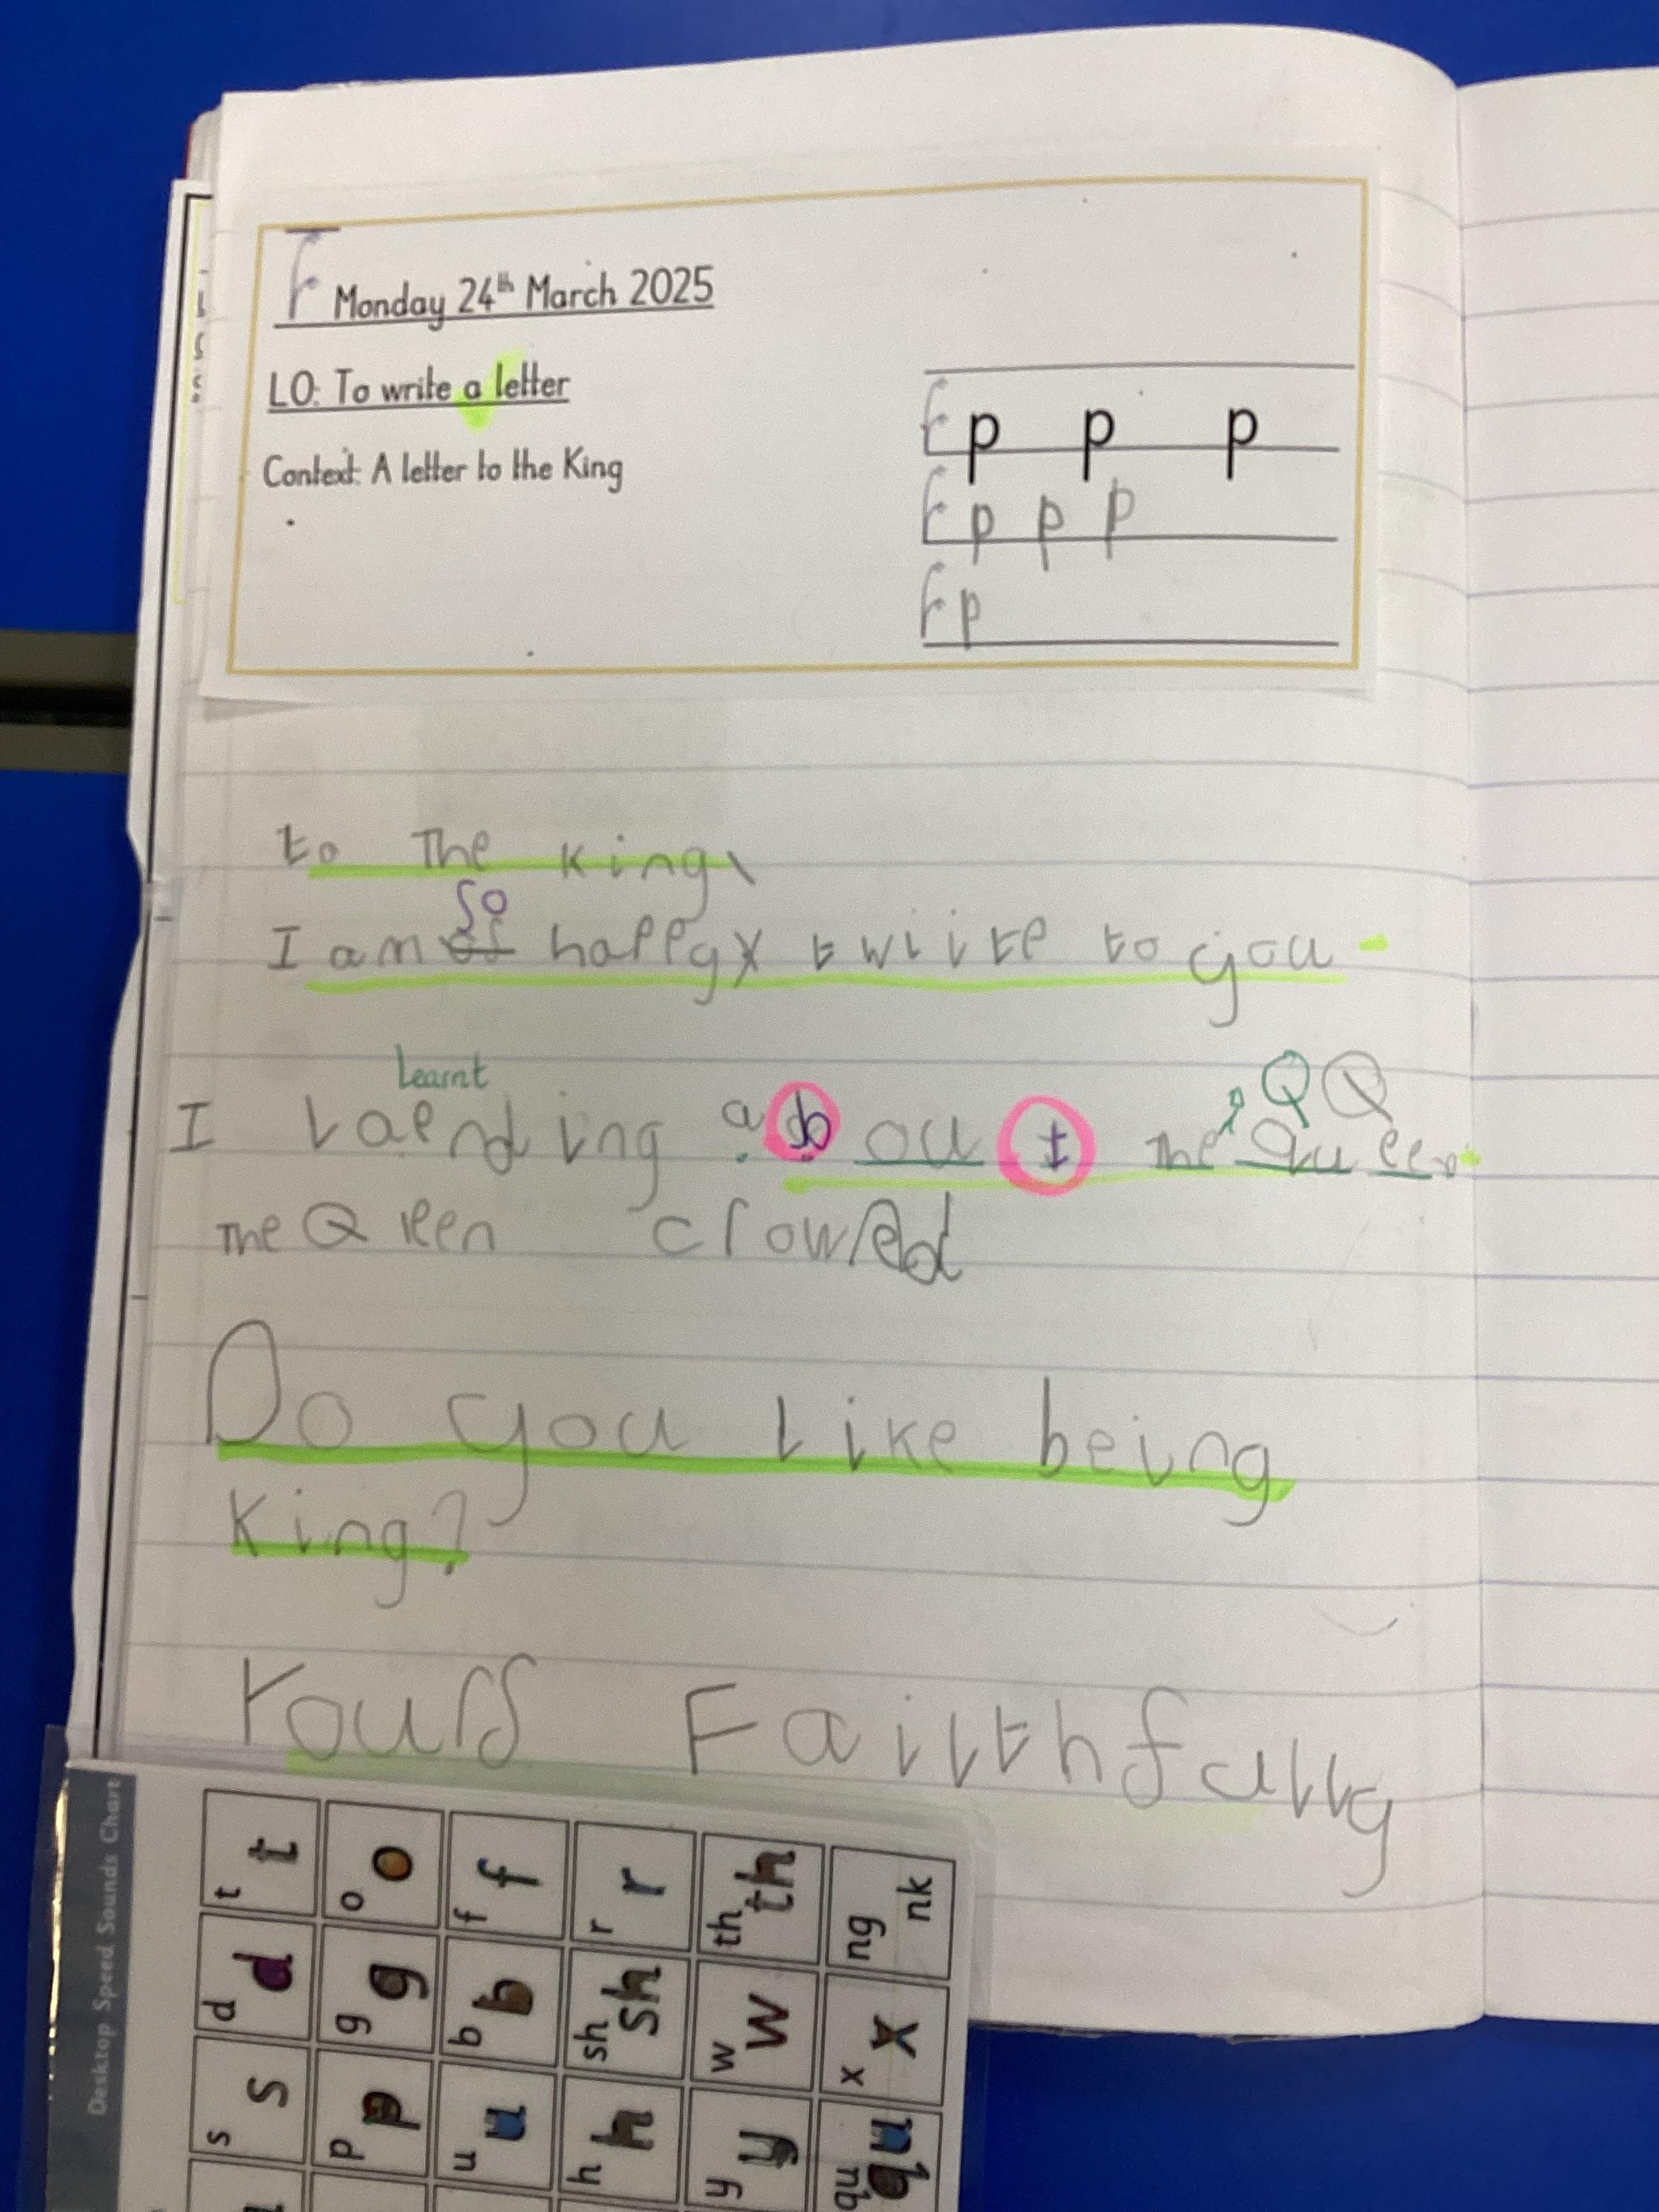 Monday 24th March 2025
LO: To write a letter
Context: A letter to the King
p p p
p p p
p
to The King,
so
I am of happy x twiite to you
Learnt
Q Q
I Laending about The Queen
The Qieen crowed
Do you Like being
King?
Yours Faiithfully
Desktop Speed Sounds Chart
t t
o o
f f
r r
th th
ng nk
d d
g g
b b
sh sh
w w
x x
s s
p p
u u
h h
y y
qu qu